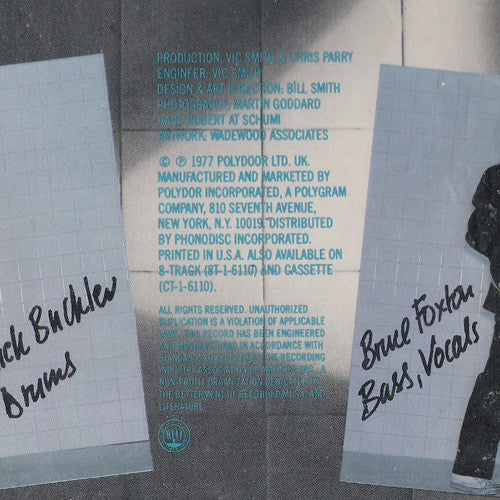 PRODUCTION: VIC SMITH & CHRIS PARRY
ENGINEER: VIC SMITH
DESIGN & ART DIRECTION: BILL SMITH
PHOTOGRAPHY: MARTIN GODDARD
HAIR: ROBERT AT SCHUMI
ARTWORK: WADEWOOD ASSOCIATES
© ℗ 1977 POLYDOOR LTD. UK.
MANUFACTURED AND MARKETED BY
POLYDOR INCORPORATED, A POLYGRAM
COMPANY, 810 SEVENTH AVENUE,
NEW YORK, N.Y. 10019. DISTRIBUTED
BY PHONODISC INCORPORATED.
PRINTED IN U.S.A. ALSO AVAILABLE ON
8-TRACK (8T-1-6110) AND CASSETTE
(CT-1-6110).
ALL RIGHTS RESERVED. UNAUTHORIZED
DUPLICATION IS A VIOLATION OF APPLICABLE
LAWS. THIS RECORD HAS BEEN ENGINEERED
AND MANUFACTURED IN ACCORDANCE WITH
STANDARDS DEVELOPED BY THE RECORDING
INDUSTRY ASSOCIATION OF AMERICA, INC., A
NON-PROFIT ORGANIZATION DEDICATED TO
THE BETTERMENT OF RECORDED MUSIC AND
LITERATURE.
ick Buckler
Drums
Bruce Foxton
Bass, Vocals